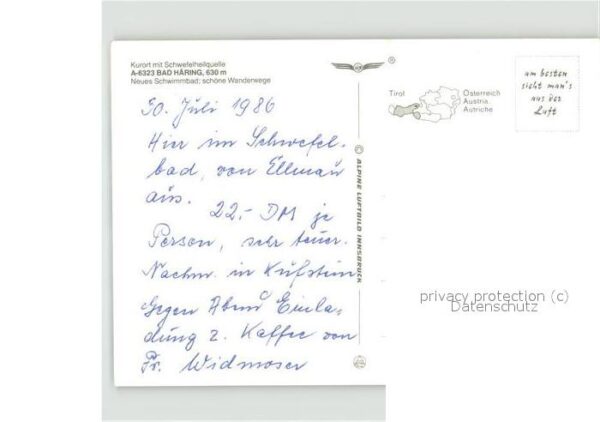 Kurort mit Schwefelheilquelle
A-6323 BAD HÄRING, 630 m
Neues Schwimmbad; schöne Wanderwege
30. Juli 1986
Hier im Schwefel-
bad, von Ellmau
aus.
22,- DM je
Person, sehr teuer.
Nachm. in Kufstein
Gegen Abend Einla-
dung z. Kaffee von
Fr. Widmoser
© ALPINE LUFTBILD INNSBRUCK
®
Tirol
Österreich
Austria
Autriche
am besten
sieht man's
aus der
Luft
privacy protection (c)
Datenschutz